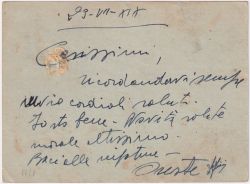 29-VII-XIX
Carissimi,
ricordandovi sempre
invio cordiali saluti.
Io sto bene - Novità solite
morale altissimo.
Baci alle nipotine -
Oreste